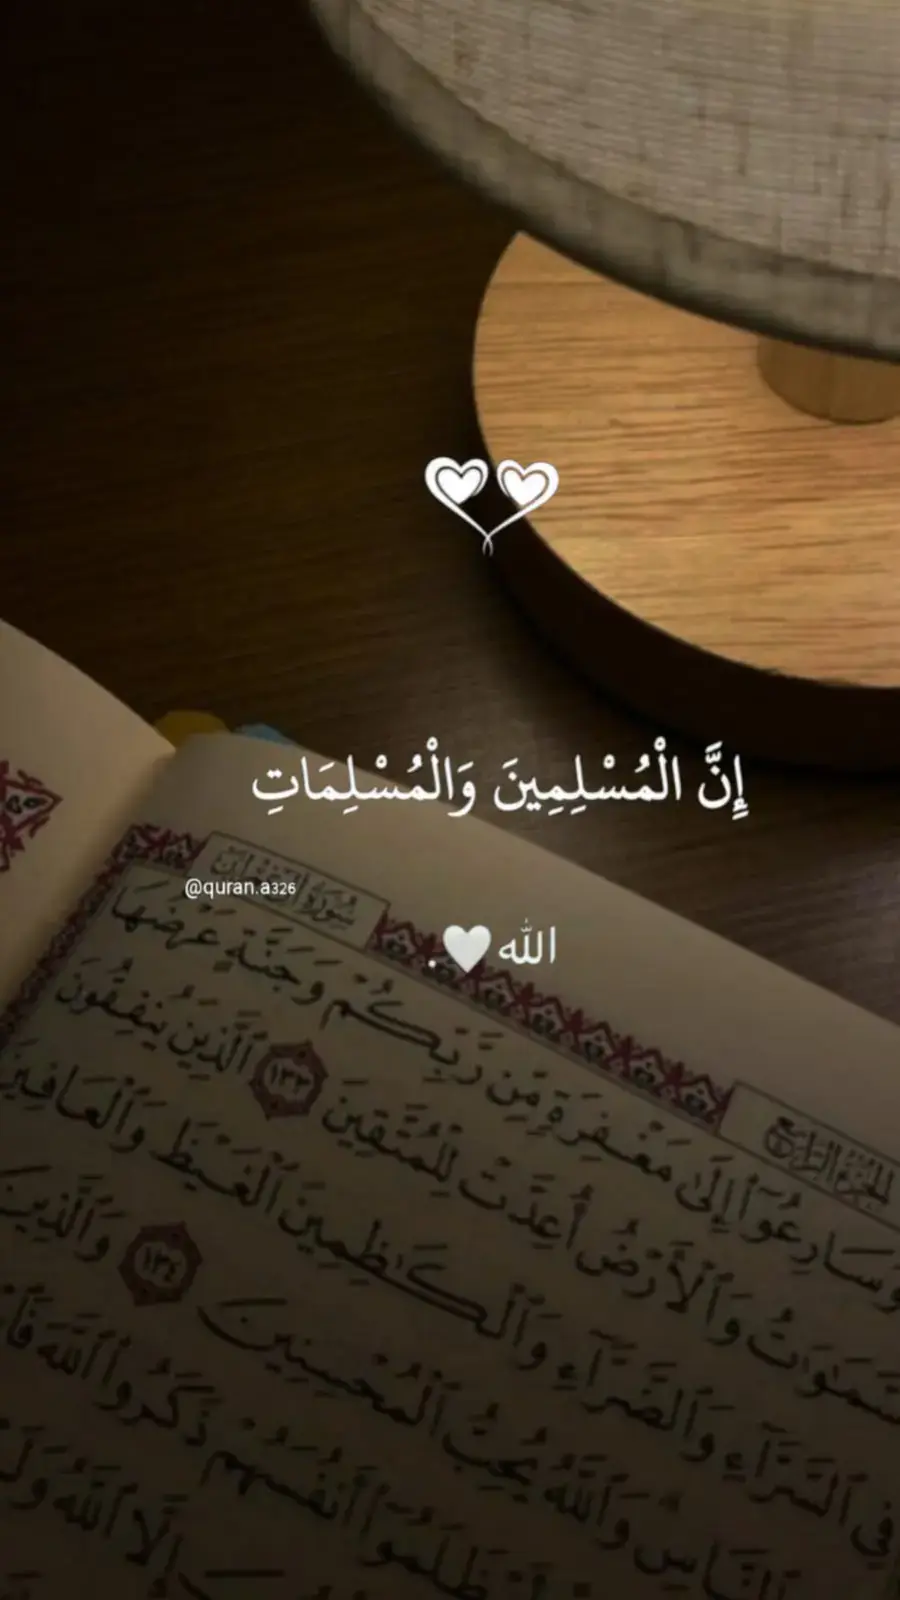 إِنَّ الْمُسْلِمِينَ وَالْمُسْلِمَاتِ
@quran.a326
الله🤍.
سُورَةُ آلِ عِمۡرَان
الجُزْءُ الرَّابِعُ
وَسَارِعُوٓاْ إِلَىٰ مَغۡفِرَةٖ مِّن رَّبِّكُمۡ وَجَنَّةٍ عَرۡضُهَا
ٱلسَّمَٰوَٰتُ وَٱلۡأَرۡضُ أُعِدَّتۡ لِلۡمُتَّقِينَ ١٣٣ ٱلَّذِينَ يُنفِقُونَ
فِي ٱلسَّرَّآءِ وَٱلضَّرَّآءِ وَٱلۡكَٰظِمِينَ ٱلۡغَيۡظَ وَٱلۡعَافِينَ
ٱلنَّاسِ وَٱللَّهُ يُحِبُّ ٱلۡمُحۡسِنِينَ ١٣٤ وَٱلَّذِينَ
ظَلَمُوٓاْ أَنفُسَهُمۡ ذَكَرُواْ ٱللَّهَ
إِلَّا ٱللَّهُ وَلَمۡ